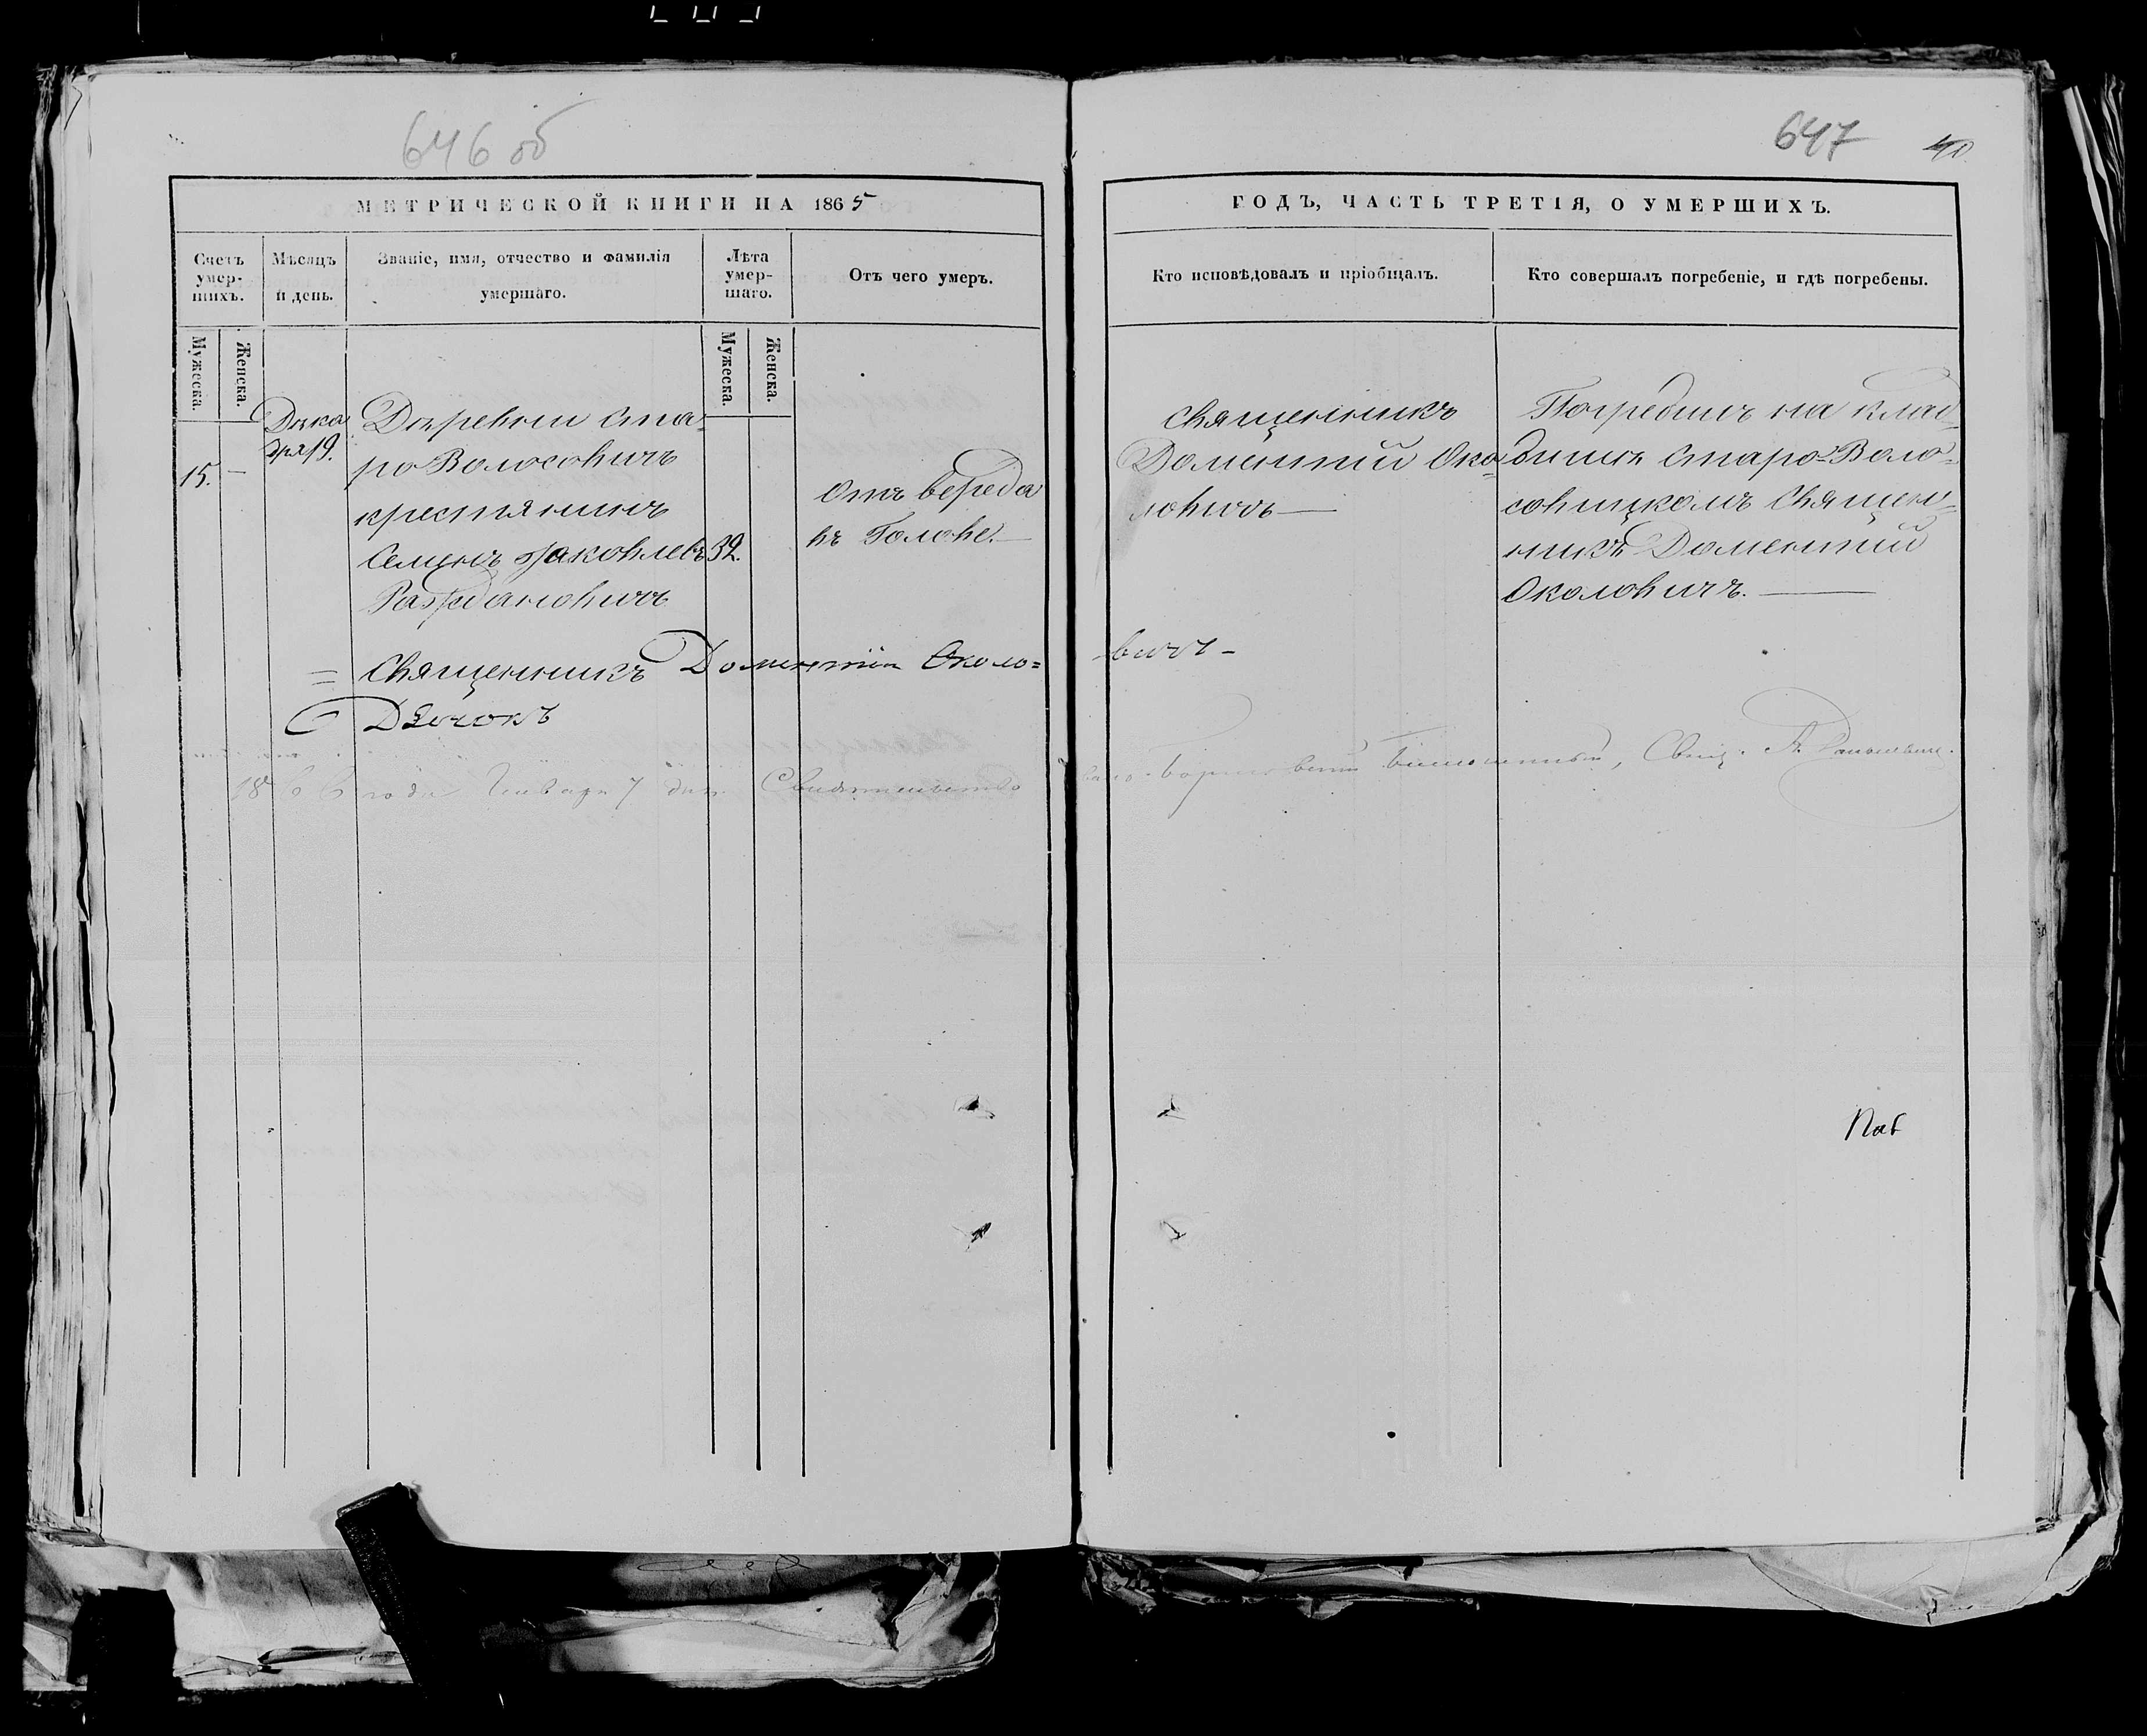 646 об
МЕТРИЧЕСКОЙ КНИГИ НА 1865
Счетъ умер-шихъ.
Мѣсяцъ и день.
Званіе, имя, отчество и фамилія умершаго.
Лѣта умер-шаго.
Отъ чего умеръ.
Мужеска.
Женска.
Мужеска.
Женска.
15.
—
Дека
бря 19.
Деревни Ста-
ро Волосовичъ
крестянинъ
Семенъ Яковлевъ
32.
Отъ вереда
въ Голове. —
= Священникъ Доментій Около=
Дьячокъ
1866 года Января 7 дня. Свидѣтельство
647
40
ГОДЪ, ЧАСТЬ ТРЕТІЯ, О УМЕРШИХЪ.
Кто исповѣдовалъ и пріобщалъ.
Кто совершалъ погребеніе, и гдѣ погребены.
Священникъ
Доментій Око=
ловичъ —
Погребенъ на клад
бищѣ Старо-Воло-
совицкомъ Священ-
никъ Доментій
Околовичъ. —
-вичъ -
Свящ.